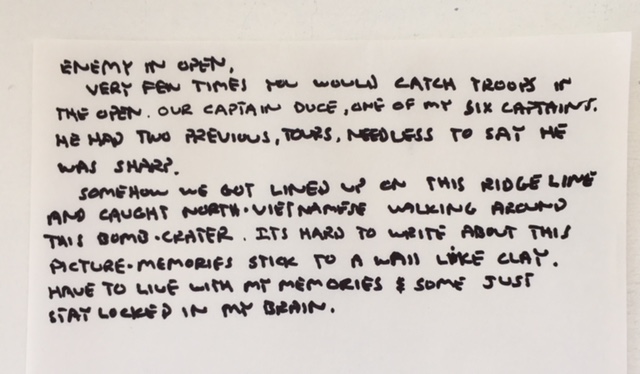 ENEMY IN OPEN,
VERY FEW TIMES YOU WOULD CATCH TROOPS IN
THE OPEN. OUR CAPTAIN DUCE, ONE OF MY SIX CAPTAINS.
HE HAD TWO PREVIOUS, TOURS, NEEDLESS TO SAY HE
WAS SHARP.
SOMEHOW WE GOT LINED UP ON THIS RIDGE LINE
AND CAUGHT NORTH-VIETNAMESE WALKING AROUND
THIS BOMB-CRATER. ITS HARD TO WRITE ABOUT THIS
PICTURE-MEMORIES STICK TO A WALL LIKE CLAY.
HAVE TO LIVE WITH MY MEMORIES & SOME JUST
STAY LOCKED IN MY BRAIN.